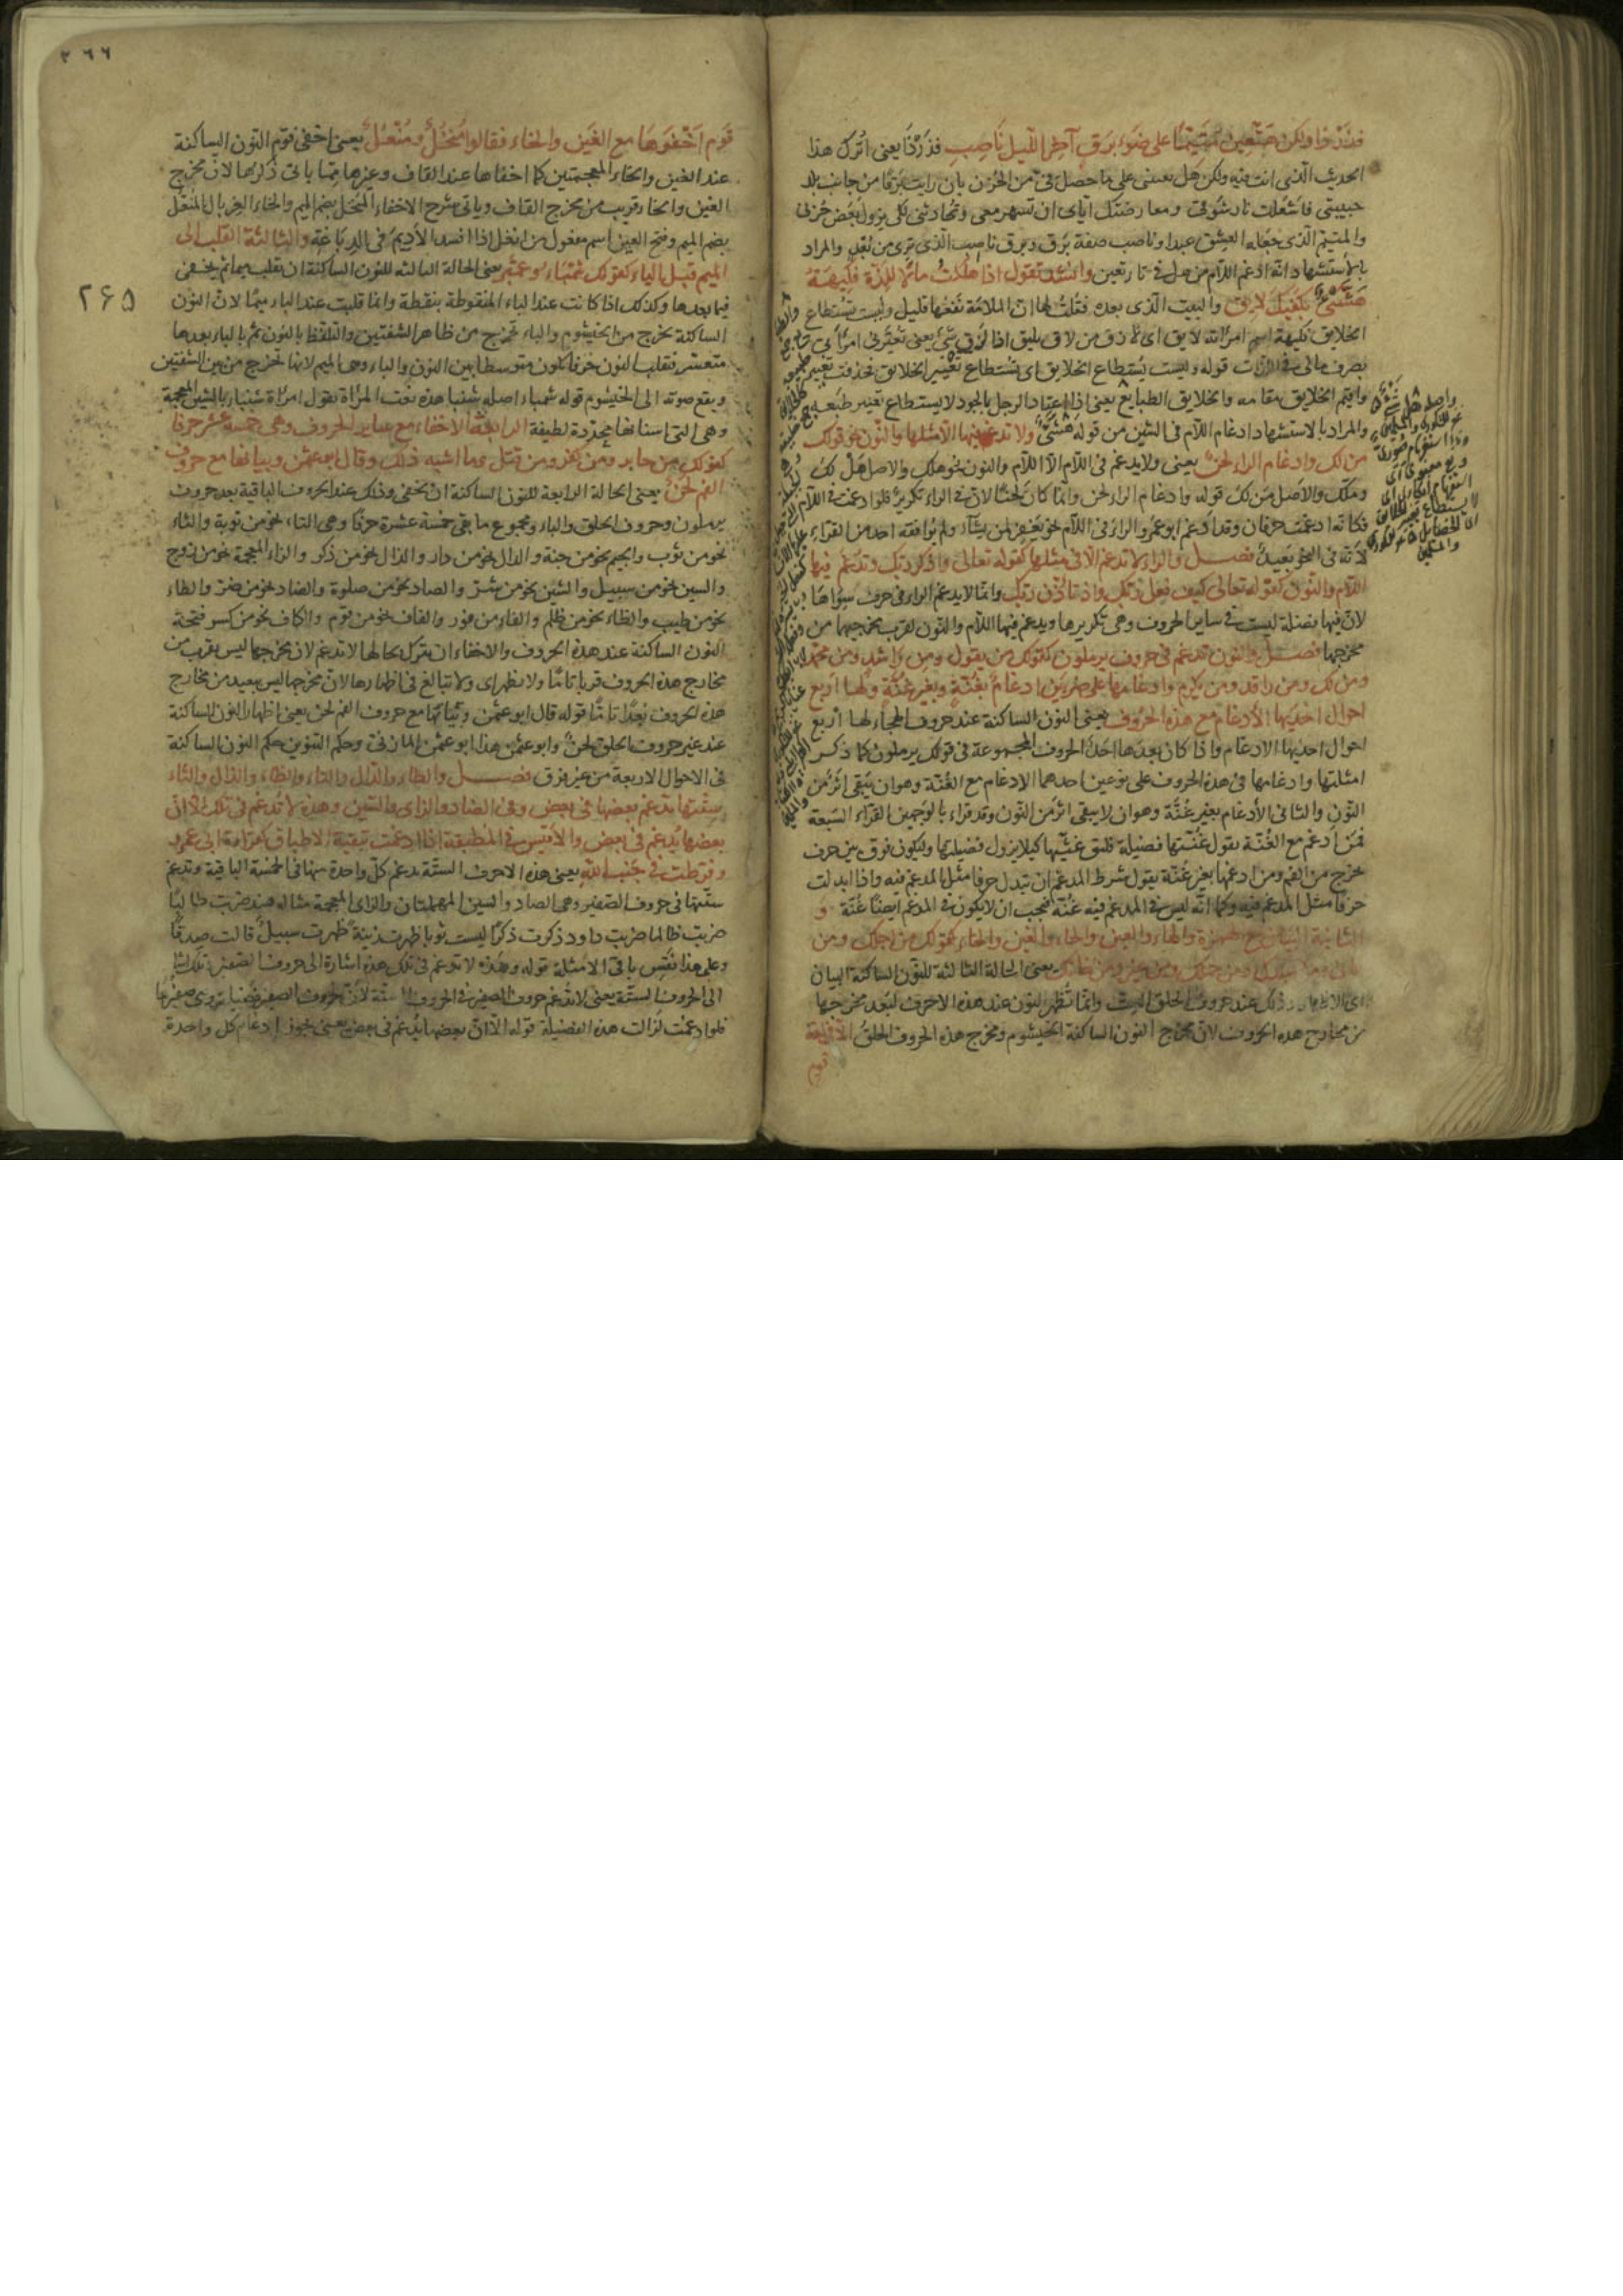 فذر ذا ولكن هتعين متيما على ضوء برق آخر الليل ناصب فذر ذا يعنى اترك هذا
الحديث الذى انت فيه ولكن هل تعيننى على ما حصل فى من الحزن بان رايت برقا من جانب بلد
حبيبتى فاشعلت نار شوقى اياى ان تسهر معى وتحادثنى لكى يزول بعض حزنى
والمتيم الذى جعله العشق عبدا وناصب صفة برق وبرق ناصب الذى ترى من بعد والمراد
بالاستشهاد انه ادغم اللام من هل فى تا تعين وانشد تقول اذا هلكت مالا للذة فكيهة
هشىء بكفيك لايق والبيت الذى بعده فقلت لها ان الملامة نفعها قليل وليست تستطاع
الخلايق فكيهة اسم امرأته لايق اى لازق من لاق يليق اذا لزق شى يعنى تعيرنى امرأتى
بصرف مالى فى اللذات قوله وليست يستطاع الخلايق اى تستطاع تغيير الخلايق فحذفت تغيير
واقيم الخلايق مقامه والخلايق الطبايع يعنى اذا اعتاد الرجل بالجود لا يستطاع تغيير طبعه
والمراد بالاستشهاد ادغام اللام فى الشين من قوله هشىء ولا تدغم فيها الا مثلها والنون كقولك
من لك وادغام الراء لحن يعنى ولا يدغم فى اللام الا اللام والنون نحو هلك والاصل هل لك
وملك والاصل من لك قوله وادغام الراء لحن وانما كان لحنا لان فى الراء تكرير فلو ادغمت فى اللام
فكانه ادغمت حرفان وقد ادغم ابو عمرو الراء فى اللام نحو يغفر لمن يشاء ولم يوافقه احد من القراء
لانه فى النحو بعيد فصل والراء لا تدغم الا فى مثلها كقوله تعالى واذكر ربك وتدغم فيها
اللام والنون كقوله تعالى كيف فعل ربك واذ تأذن ربك وانما لا يدغم الراء فى حرف سواها
لان فيها فضلة ليست فى ساير الحروف وهى تكريرها ويدغم فيها اللام والنون لقرب مخرجهما من
مخرجها فصل والنون تدغم فى حروف يرملون كقولك من يقول ومن راشد ومن محمد
ومن لك ومن واقد ومن نكرم وادغامها على ضربين ادغام بغنة وبغير غنة ولها اربع
احوال احديها الادغام مع هذه الحروف يعنى النون الساكنة عند حروف الهجاء لها اربع
احوال احديها الادغام واذا كان بعدها احد الحروف المجموعة فى قولك يرملون كما ذكر
امثلتها وادغامها فى هذه الحروف على نوعين احدهما الادغام مع الغنة وهو ان يبقى اثر من
النون والثانى الادغام بغير غنة وهو ان لا يبقى اثر من النون وقد قراء بالوجهين القراء السبعة
فمن ادغم مع الغنة يقول غنتها فضيلة كيلا يزول فضيلتها وليكون فرق بين حرف
تخرج من الفم ومن ادغمها بغير غنة يقول شرط المدغم ان تبدل حرفا مثل المدغم فيه واذا ابدلت
حرفا مثل المدغم فيه وكما انه ليس فى المدغم فيه غنة فيجب ان لا يكون فى المدغم ايضا غنة و
الثانية البيان مع الهمزة والهاء والعين والحاء والغين والخاء كقولك من اجلك ومن
يعنى الحالة الثانية للنون الساكنة البيان
اى الاظهار وذلك عند حروف الحلق الست وانما تظهر النون عند هذه الاحرف لبعد مخرجها
من مخارج هذه الحروف لان مخرج النون الساكنة الخيشوم ومخرج هذه الحروف الحلق الا فى لغة
قوم
٢٦٦
٢۶۵
قوم اخفوها مع الغين والخاء فقالوا منخل ومنغل يعنى اخفى قوم النون الساكنة
عند الغين والخاء المعجمتين كما اخفاها عند القاف وغيرها مما ياتى ذكرها لان مخرج
الغين والخاء قريب من مخرج القاف وياتى شرح الاخفاء المنخل بضم الميم والخاء الغربال المنغل
بضم الميم وفتح الغين اسم مفعول من انغل اذا افسد الاديم فى الدباغة والثالثة القلب الى
الميم قبل الباء كقولك شمباء وعمبر يعنى الحالة الثالثة للنون الساكنة ان تقلب ميما ثم يخفى
فيما بعدها وكذلك اذا كانت عند الباء المنقوطة بنقطة وانما قلبت عند الباء ميما لان النون
الساكنة تخرج من الخيشوم والباء تخرج من ظاهر الشفتين والتلفظ بالنون ثم بالباء بعدها
متعسر فتقلب النون حرفا يكون متوسطا بين النون والباء وهى الميم لانها تخرج من بين الشفتين
ويقع صوته الى الخيشوم قوله شمباء اصله شنبا هذه نعت المرأة تقول امرأة شنباء بالشين المعجمة
وهى التى اسنانها محددة لطيفة الرابعة الاخفاء مع ساير الحروف وهى خمسة عشر حرفا
كقولك من جابر ومن كفر ومن قتل وما اشبه ذلك وقال ابو عثمن وبيانها مع حروف
الفم لحن يعنى الحالة الرابعة للنون الساكنة ان تخفى وذلك عند الحروف الباقية بعد حروف
يرملون وحروف الحلق والباء ومجموع ما بقى خمسة عشرة حرفا وهى التاء نحو من توبة والثاء
نحو من ثوب والجيم نحو من جنة والدال نحو من دار والذال نحو من ذكر والزاء المعجمة نحو من زوج
والسين نحو من سبيل والشين نحو من شر والصاد نحو من صلوة والضاد نحو من ضر والطاء
نحو من طيب والظاء نحو من ظلم والفاء من فور والقاف نحو من قوم والكاف نحو من كسر فتحة
النون الساكنة عند هذه الحروف والاخفاء ان تترك بحالها لا تدغم لان مخرجها ليس بقرب من
مخارج هذه الحروف قربا تاما ولا تظهر اى ولا تبالغ فى اظهارها لان مخرجها ليس ببعيد من مخارج
هذه الحروف بعدا تاما قوله قال ابو عثمن وبيانها مع حروف الفم لحن يعنى اظهار النون الساكنة
عند غير حروف الحلق لحن وابو عثمن هذا ابو عثمن المازنى وحكم التنوين حكم النون الساكنة
فى الاحوال الاربعة من غير فرق فصل والطاء والدال والتاء والظاء والذال والثاء
ستتها تدغم بعضها فى بعض وفى الصاد والزاى والسين وهذه لا تدغم فى تلك الا ان
بعضها يدغم فى بعض والاقيس فى المطبقة اذا ادغمت تبقية الاطباق كقراءة ابى عمرو
وفرطت فى جنب الله يعنى هذه الاحرف الستة يدغم كل واحدة منها فى الخمسة الباقية وتدغم
ستتها فى حروف الصفير وهى الصاد والسين المهملتان والزاى المعجمة مثاله هند ضربت طالبا
ضربت ظالما ضربت داود ذكرت ذكرا ليست ثوبا ظهرت زينة ظهرت سبيل قالت صدقا
وعلى هذا نقس باقى الامثلة قوله وهذه لا تدغم فى تلك هذه اشارة الى حروف الصفير وتلك اشارة
الى الحروف الستة يعنى لا تدغم حروف الصفير فى الحروف الستة لان حروف الصفير صفيرها
فلو ادغمت لزالت هذه الفضيلة قوله الا ان بعضها يدغم فى بعض يعنى يجوز ادغام كل واحدة